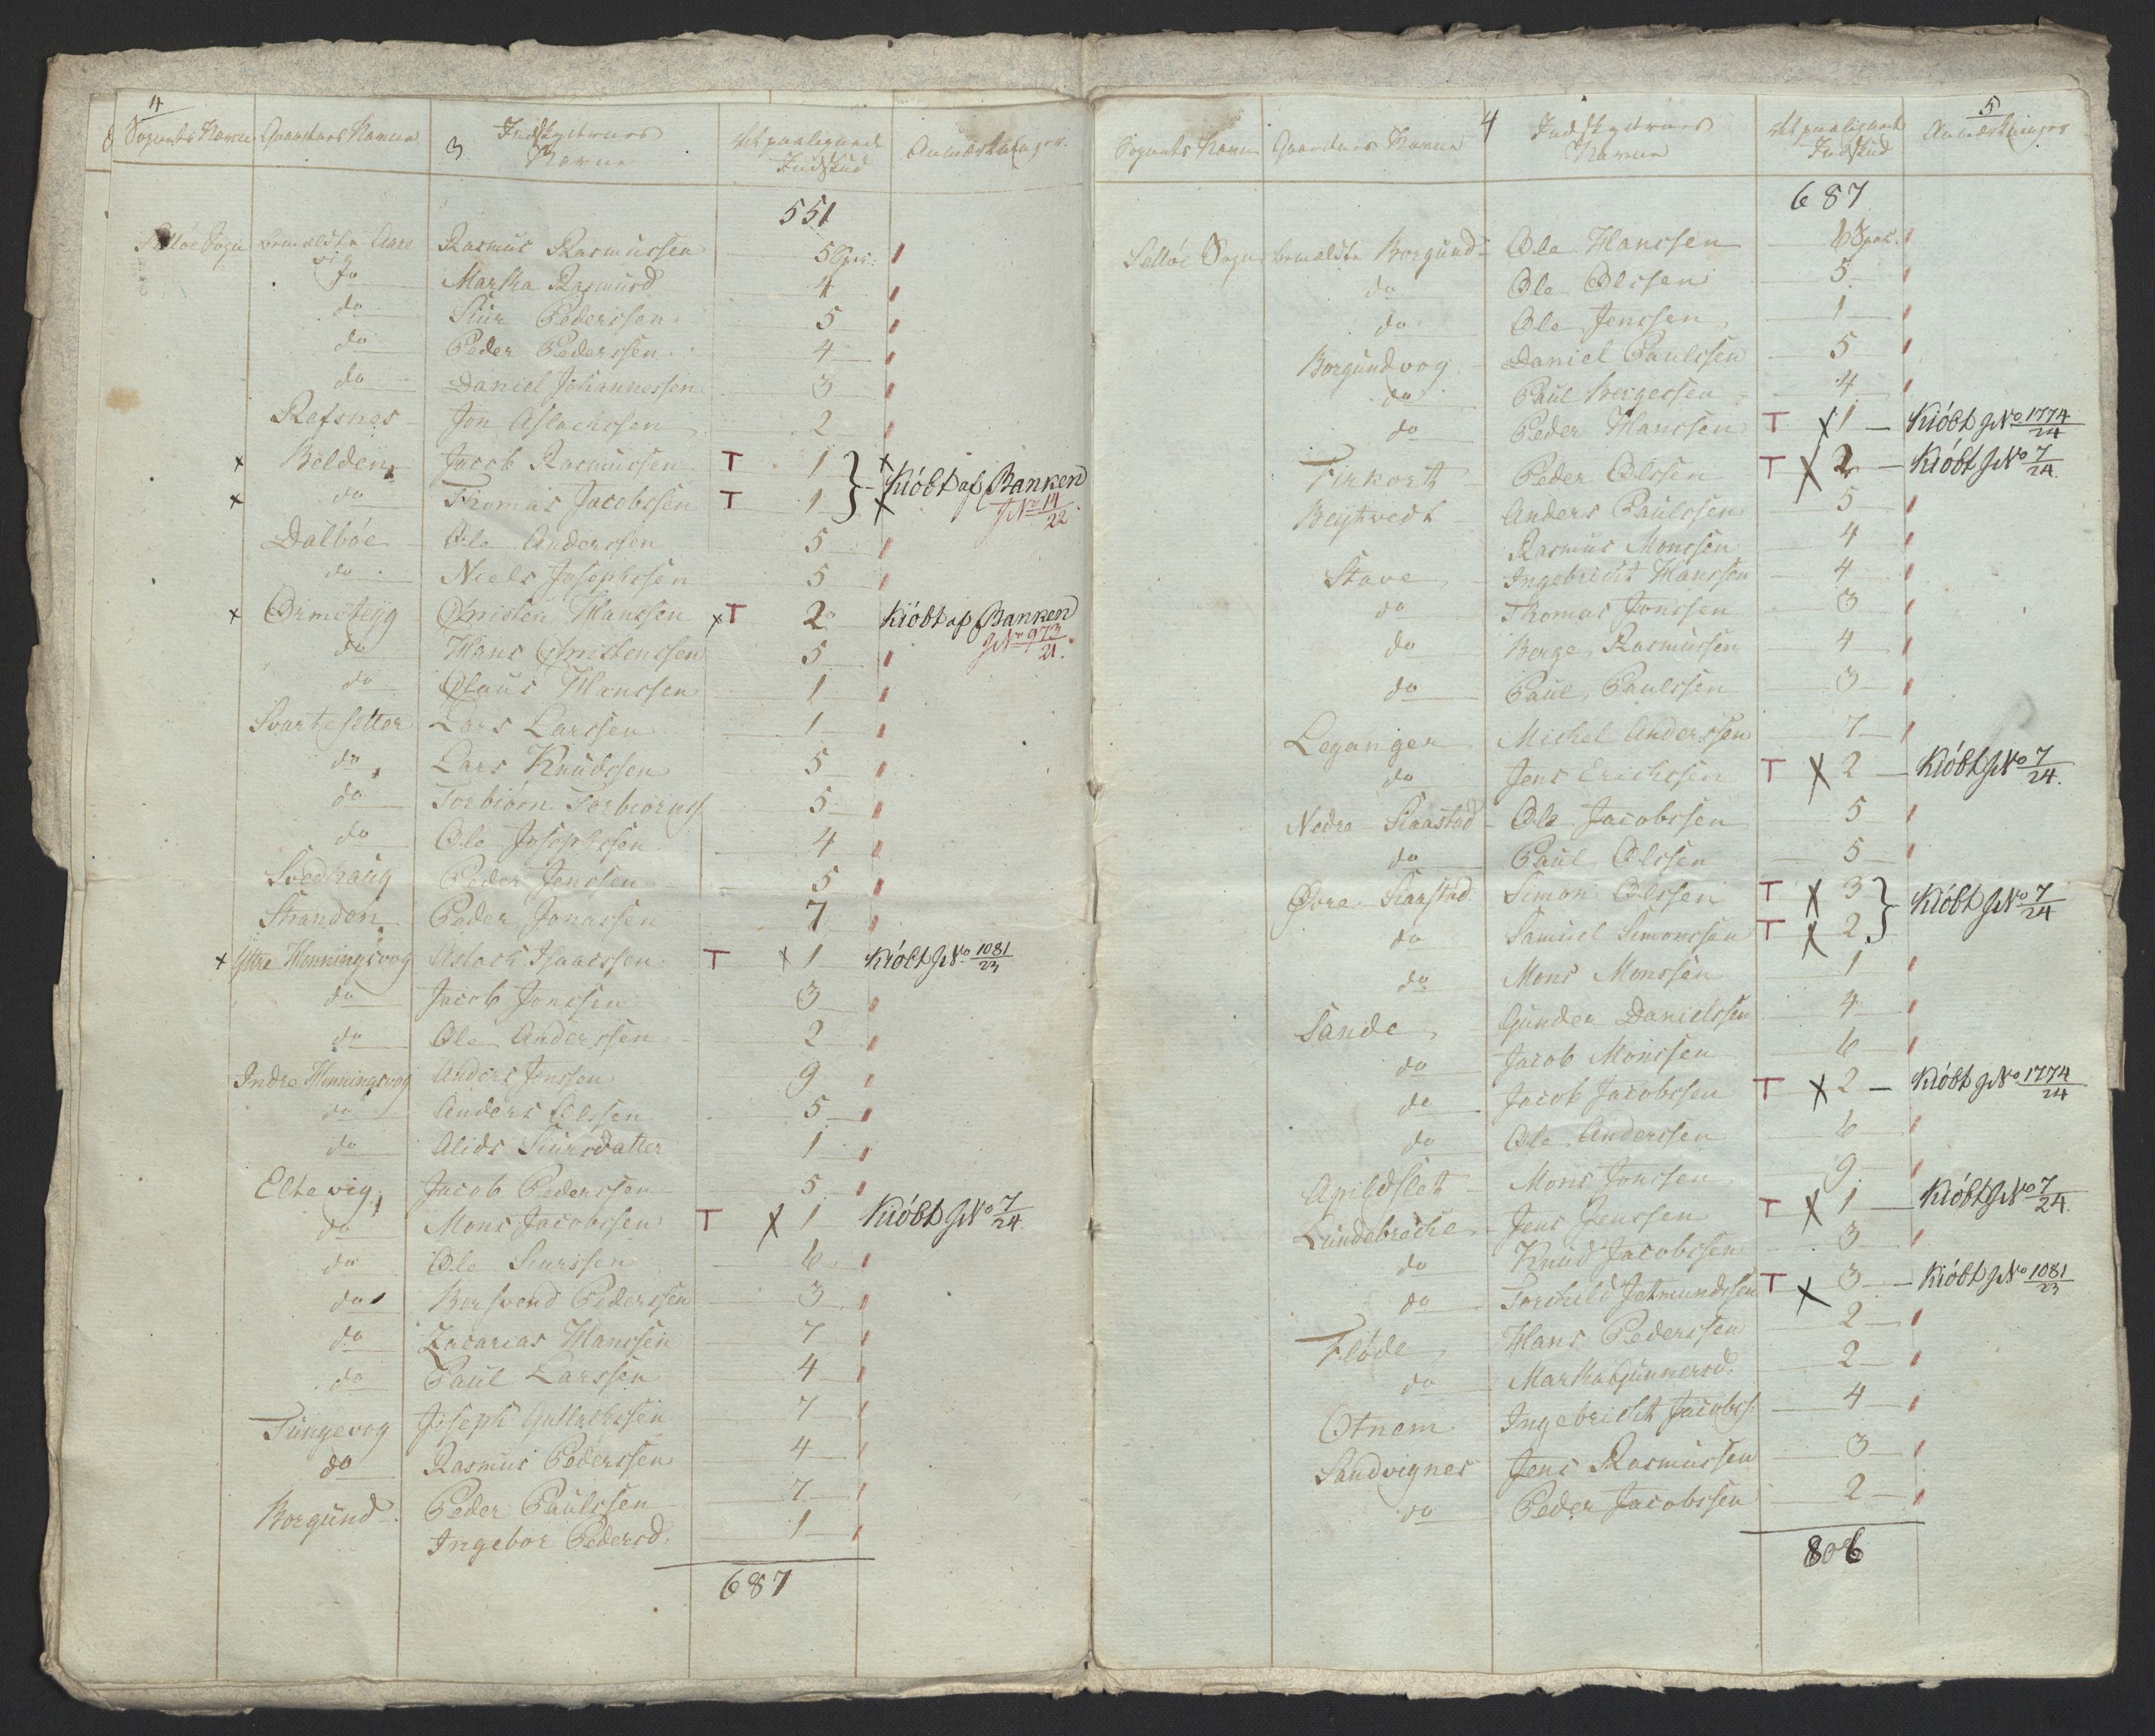 4
Sognets Navn Gaardens Navne 3 Indskydernes Navne Det paalignede Indskud Anmærkninger.
551
Selløe Sogn bemeldte Aarevig Rasmus Rasmussen 5 Spec:
do Martha Rasmusd 4
do Siur Pederssen 5
do Peder Pederssen 4
do Daniel Johannessen 3
Refsnes Jon Aslachssen 2
x Belden Jacob Rasmussen T 1 x
x do Thomas Jacobssen T 1 x Kióbt af Banken JNo 14/22
Dalbóe Ole Anderssen 5
do Niels Josephssen 5
x Ormsteyg Christen Hanssen x T 2 Kióbt af Banken JNo 973/21.
do Hans Christenssen 5
do Claus Hanssen 1
Svartesetter Lars Larssen 1
do Lars Knudssen 5
do Torbiórn Torbiornss 5
do Ole Josephssen 4
Svedhaug Peder Jenssen 5
Stranden Peder Jonassen 7
x Yttre Henningsvog Aslach Isaacssen T x 1 Kióbt JNo 1081/23
do Jacob Jonssen 3
do Ole Anderssen 2
Indre Henningsvog Anders Jonssen 9
do Anders Olssen 5
do Alids Siursdatter 1
Eltevig Jacob Pederssen 5
do Mons Jacobssen T x 1 Kióbt JNo 7/24.
do Ole Siurssen 6
do Borsvend Pederssen 3
do Zacarias Hanssen 7
do Paul Larssen 4
Tungevog Joseph Gutlachssen 7
do Rasmus Pederssen 4
Borgund Peder Paulssen 7
Ingebor Pedersd. 1
687
5
Sognets Navn Gaardenes Navne 4 Indskydernes Navne Det paalignede Indskud Anmærkninger
687
Selløe Sogn bemeldte Borgund Ole Hanssen 6 Spec.
do Ole Olssen 5
do Ole Jenssen 1
Borgundvog Daniel Paulssen 5
do Paul Bergessen 4
do Peder Hanssen T x 1 Kióbt JNo 1774/24
Tirkort Peder Olssen T x 2 Kióbt JNo 7/24.
Beytvedt Anders Paulssen 5
Rasmus Monssen 4
Stave Ingebricht Hanssen 4
do Thomas Jonssen 3
do Berge Rasmussen 4
do Paul Paulssen 3
Leganger Michel Anderssen 7
do Jens Erichssen T x 2 Kióbt JNo 7/24.
Nedre Skaastad Ole Jacobssen 5
do Paul Olssen 5
Øvre Skaastad Simon Olssen T x 3
do Samuel Simonssen T x 2 Kióbt JNo 7/24
do Mons Monssen 1
Sande Gunder Danielssen 4
do Jacob Monssen 6
do Jacob Jacobssen T x 2 Kióbt JNo 1774/24
do Ole Anderssen 6
Apildslet Mons Jonssen 9
Lundebrecke Jens Jenssen T x 1 Kióbt JNo 7/24.
do Knud Jacobssen 3
do Torchild Jetmundssen T x 3 Kióbt JNo 1081/23
Flóde Hans Pederssen 2
do Martha Gunnersd. 2
Otnem Ingebricht Jacobss. 4
Sandvignes Jens Rasmussen 3
do Peder Jacobssen 2
806